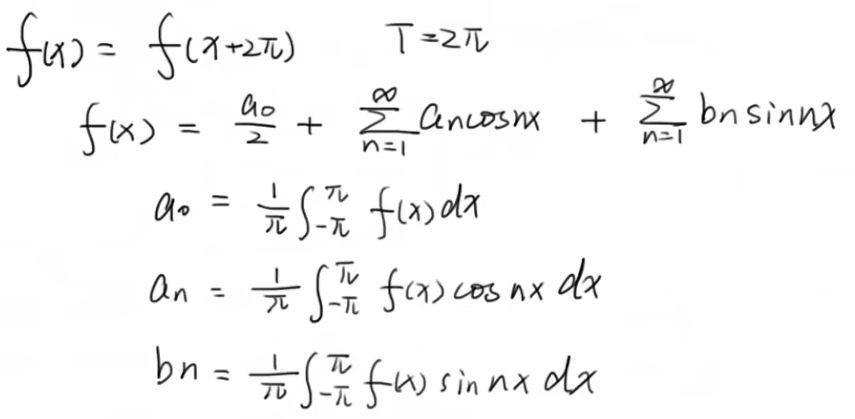 f(x) = f(x+2π)   T=2π
f(x) = a₀/2 + ∑_{n=1}^{∞} aₙcosnx + ∑_{n=1}^{∞} bₙsinnx
a₀ = 1/π ∫_{-π}^{π} f(x)dx
aₙ = 1/π ∫_{-π}^{π} f(x) cos nx dx
bₙ = 1/π ∫_{-π}^{π} f(x) sin nx dx